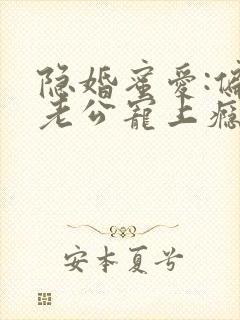 隐婚蜜爱:偏
老公宠上瘾
安本夏兮